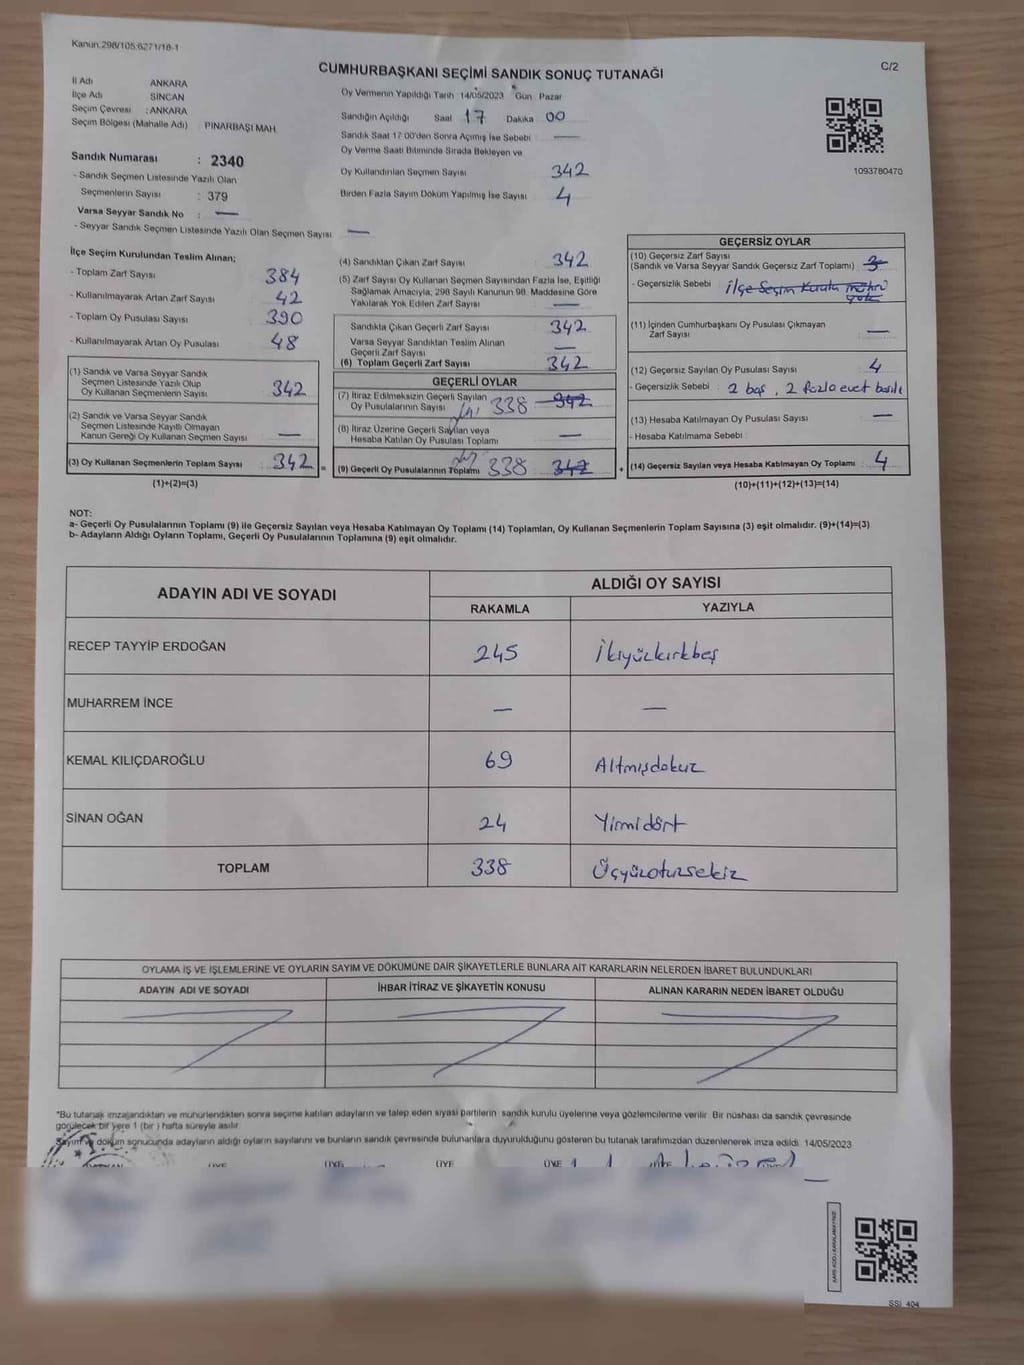 Kanun:298/105;6271/18-1
C/2
CUMHURBAŞKANI SEÇİMİ SANDIK SONUÇ TUTANAĞI
İl Adı ANKARA
İlçe Adı SİNCAN
Seçim Çevresi : ANKARA
Seçim Bölgesi (Mahalle Adı) : PINARBAŞI MAH.
Sandık Numarası : 2340
- Sandık Seçmen Listesinde Yazılı Olan
Seçmenlerin Sayısı : 379
Varsa Seyyar Sandık No : —
- Seyyar Sandık Seçmen Listesinde Yazılı Olan Seçmen Sayısı —
Oy Vermenin Yapıldığı Tarih 14/05/2023 Gün Pazar
Sandığın Açıldığı Saat 17 Dakika 00
Sandık Saat 17:00'den Sonra Açımış İse Sebebi —
Oy Verme Saati Bitiminde Sırada Bekleyen ve
Oy Kullandırılan Seçmen Sayısı 342
Birden Fazla Sayım Döküm Yapılmış İse Sayısı 4
1093780470
İlçe Seçim Kurulundan Teslim Alınan;
- Toplam Zarf Sayısı 384
- Kullanılmayarak Artan Zarf Sayısı 42
- Toplam Oy Pusulası Sayısı 390
- Kullanılmayarak Artan Oy Pusulası 48
(1) Sandık ve Varsa Seyyar Sandık
Seçmen Listesinde Yazılı Olup
Oy Kullanan Seçmenlerin Sayısı 342
(2) Sandık ve Varsa Seyyar Sandık
Seçmen Listesinde Kayıtlı Olmayan
Kanun Gereği Oy Kullanan Seçmen Sayısı —
(3) Oy Kullanan Seçmenlerin Toplam Sayısı 342 =
(1)+(2)=(3)
(4) Sandıktan Çıkan Zarf Sayısı 342
(5) Zarf Sayısı Oy Kullanan Seçmen Sayısından Fazla İse, Eşitliği
Sağlamak Amacıyla, 298 Sayılı Kanunun 98. Maddesine Göre
Yakılarak Yok Edilen Zarf Sayısı —
Sandıkta Çıkan Geçerli Zarf Sayısı 342
Varsa Seyyar Sandıktan Teslim Alınan
Geçerli Zarf Sayısı —
(6) Toplam Geçerli Zarf Sayısı 342
GEÇERLİ OYLAR
(7) İtiraz Edilmeksizin Geçerli Sayılan
Oy Pusulalarının Sayısı 338 342
(8) İtiraz Üzerine Geçerli Sayılan veya
Hesaba Katılan Oy Pusulası Toplamı —
(9) Geçerli Oy Pusulalarının Toplamı 338 342 +
GEÇERSİZ OYLAR
(10) Geçersiz Zarf Sayısı
(Sandık ve Varsa Seyyar Sandık Geçersiz Zarf Toplamı) 3
- Geçersizlik Sebebi : İlçe Seçim Kurulu mührü
yok
(11) İçinden Cumhurbaşkanı Oy Pusulası Çıkmayan
Zarf Sayısı —
(12) Geçersiz Sayılan Oy Pusulası Sayısı 4
- Geçersizlik Sebebi : 2 boş, 2 fazla evet basılı
(13) Hesaba Katılmayan Oy Pusulası Sayısı —
- Hesaba Katılmama Sebebi :
(14) Geçersiz Sayılan veya Hesaba Katılmayan Oy Toplamı 4
(10)+(11)+(12)+(13)=(14)
NOT:
a- Geçerli Oy Pusulalarının Toplamı (9) ile Geçersiz Sayılan veya Hesaba Katılmayan Oy Toplamı (14) Toplamları, Oy Kullanan Seçmenlerin Toplam Sayısına (3) eşit olmalıdır. (9)+(14)=(3)
b- Adayların Aldığı Oyların Toplamı, Geçerli Oy Pusulalarının Toplamına (9) eşit olmalıdır.
ADAYIN ADI VE SOYADI ALDIĞI OY SAYISI
RAKAMLA YAZIYLA
RECEP TAYYİP ERDOĞAN 245 İkiyüzkırkbeş
MUHARREM İNCE — —
KEMAL KILIÇDAROĞLU 69 Altmışdokuz
SİNAN OĞAN 24 Yirmidört
TOPLAM 338 Üçyüzotuzsekiz
OYLAMA İŞ VE İŞLEMLERİNE VE OYLARIN SAYIM VE DÖKÜMÜNE DAİR ŞİKAYETLERLE BUNLARA AİT KARARLARIN NELERDEN İBARET BULUNDUKLARI
ADAYIN ADI VE SOYADI İHBAR İTİRAZ VE ŞİKAYETİN KONUSU ALINAN KARARIN NEDEN İBARET OLDUĞU
*Bu tutanak imzalandıktan ve mühürlendikten sonra seçime katılan adayların ve talep eden siyasi partilerin sandık kurulu üyelerine veya gözlemcilerine verilir. Bir nüshası da sandık çevresinde
görülecek bir yere 1 (bir) hafta süreyle asılır.
Sayım ve döküm sonucunda adayların aldığı oyların sayılarını ve bunların sandık çevresinde bulunanlara duyurulduğunu gösteren bu tutanak tarafımızdan düzenlenerek imza edildi. 14/05/2023
ÜYE ÜYE ÜYE ÜYE
SSI_404